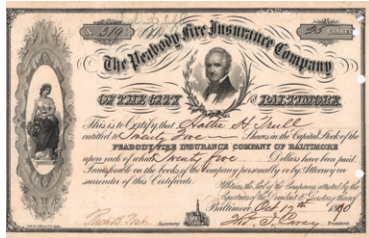 No 319
25 SHARES
The Peabody Fire Insurance Company
OF THE CITY OF BALTIMORE
This is to Certify that Hattie H. Trull
entitled to Twenty Five Shares in the Capital Stock of the
PEABODY FIRE INSURANCE COMPANY OF BALTIMORE
upon each of which Twenty five Dollars have been paid.
Transferable on the books of the Company personally or by Attorney on
surrender of this Certificate.
Witness the Seal of the Company attested by the
Signatures of the President & Secretary
Baltimore Oct 17th 1890
Secretary
Thos. I. Carey